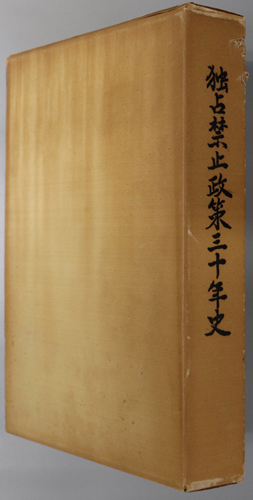 独占禁止政策三十年史